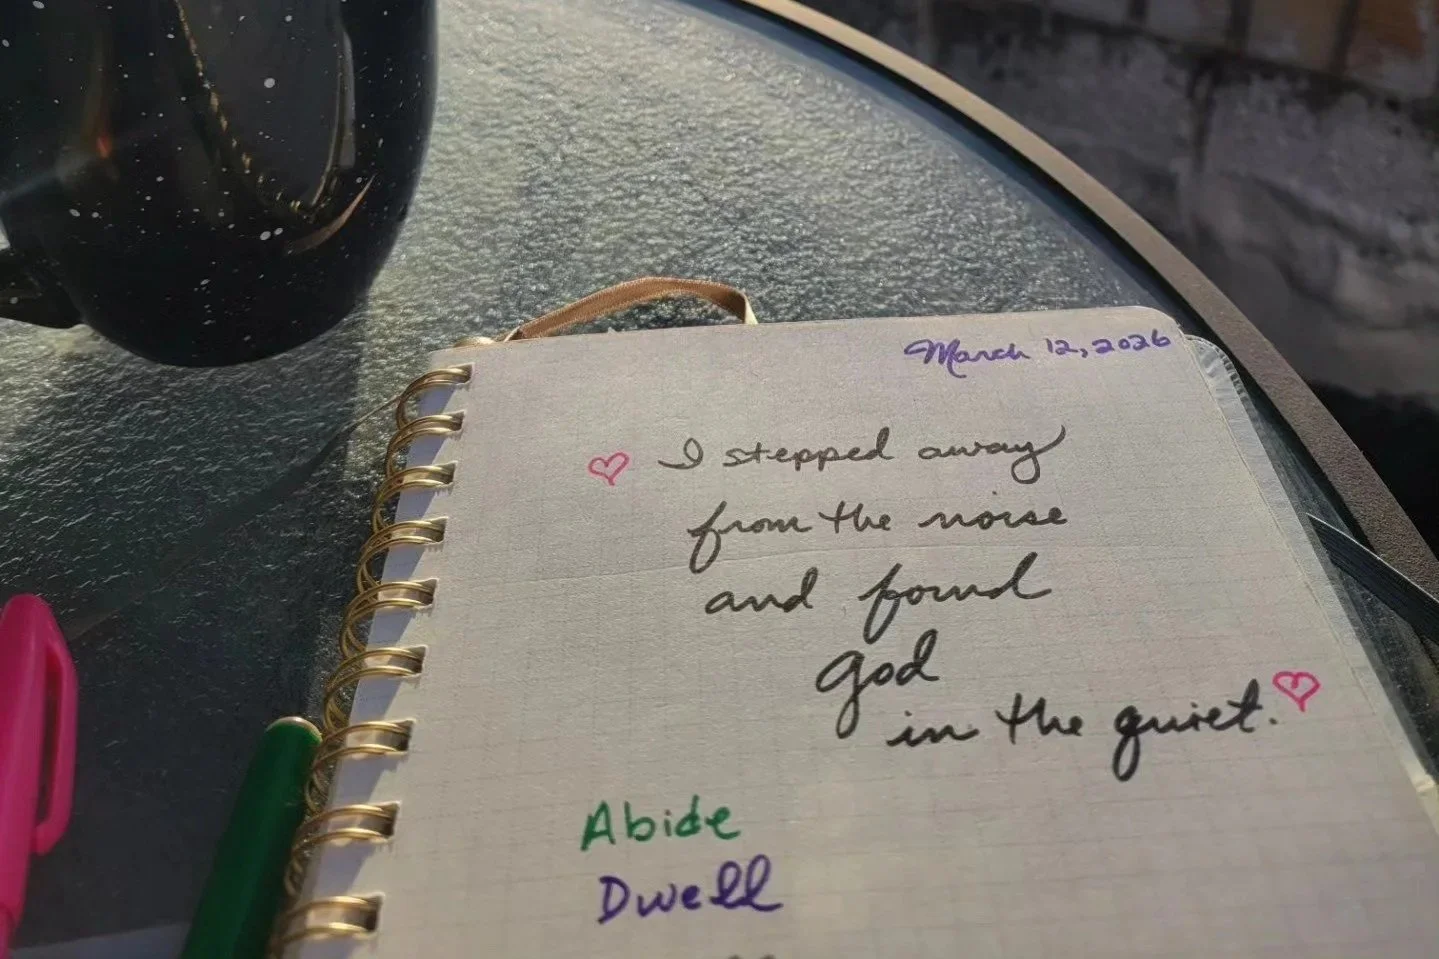 March 12, 2026
I stepped away
from the noise
and found
God
in the quiet.
Abide
Dwell